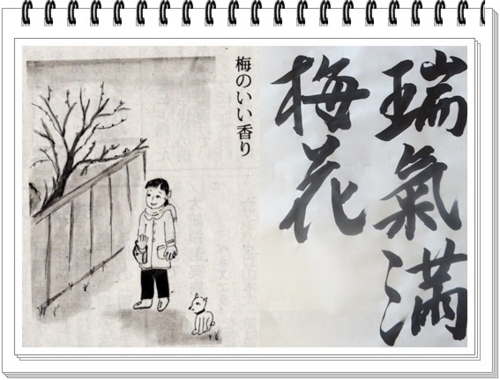 梅のいい香り
瑞氣滿
梅花